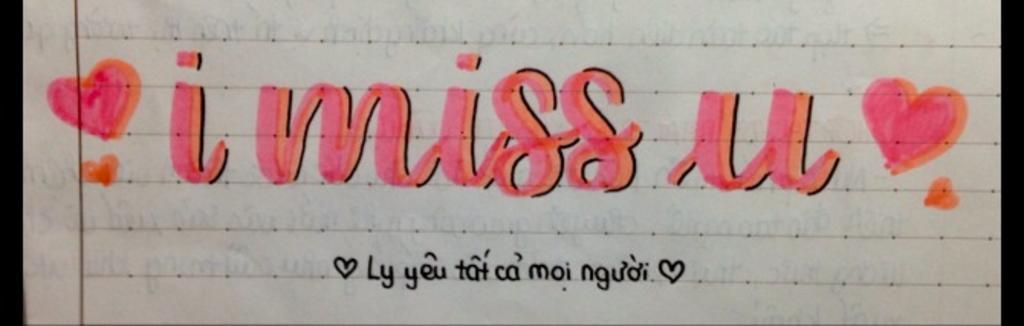 i miss u
♡ Ly yêu tất cả mọi người ♡